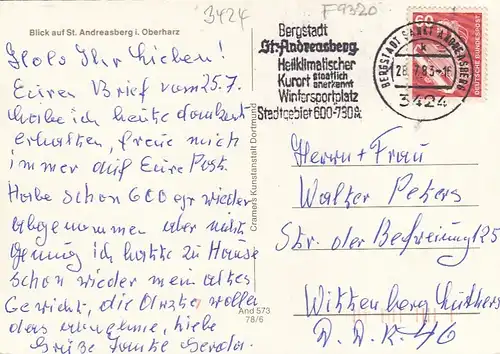 3424
F9320
Blick auf St. Andreasberg i. Oberharz
Hallo Ihr Lieben!
Euren Brief vom 25.7.
habe ich heute dankend
erhalten, freue mich
immer auf Eure Post.
Habe schon 600 gr wieder
abgenommen aber nicht
genung ich hatte zu Hause
schon wieder mein altes
Gewicht, die Ärzte wollen
das annehme, liebe
Grüße Tante Gerda.
Cramers Kunstanstalt Dortmund
And 573
78/6
Bergstadt
St. Andreasberg
Heilklimatischer
Kurort staatlich anerkannt
Wintersportplatz
Stadtgebiet 600-730 m
BERGSTADT SANKT ANDREASBERG
28.7.83-16
3424
60
DEUTSCHE BUNDESPOST
Herrn + Frau
Walter Peters
Str. der Befreiung 125
Wittenberg Lutherst
D.D.R. 46